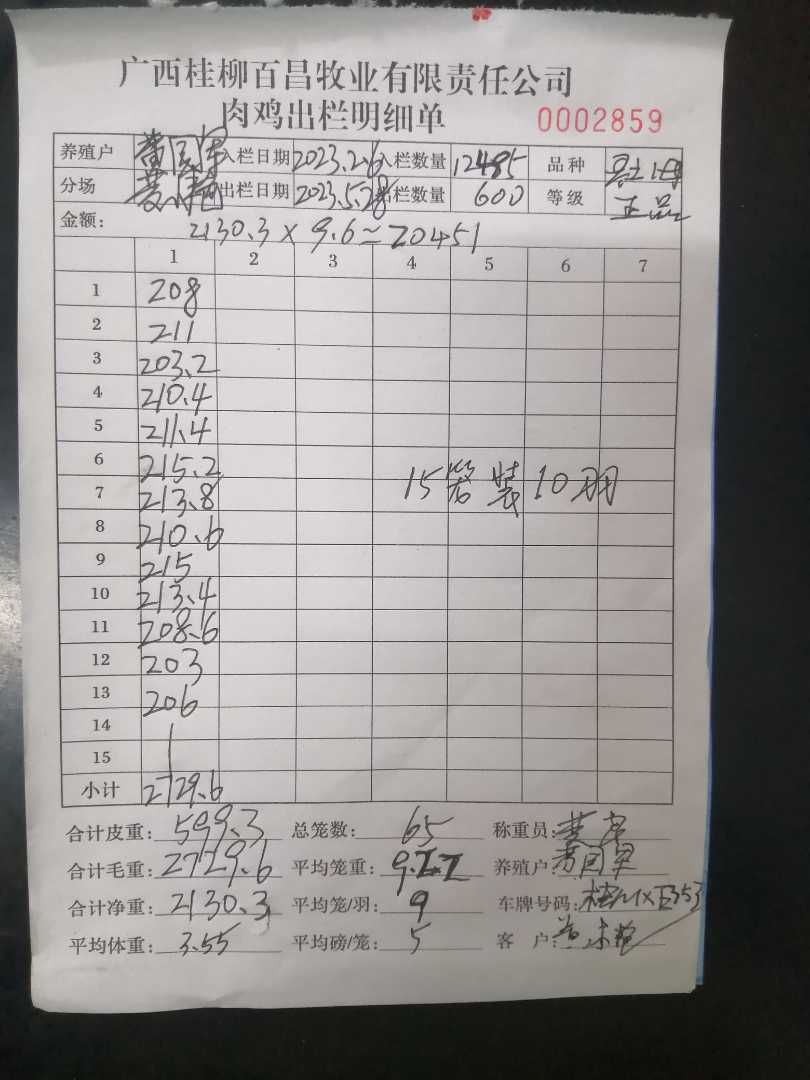 广西桂柳百昌牧业有限责任公司
肉鸡出栏明细单 0002859
养殖户 入栏日期 2023.2.6 入栏数量 12485 品种
分场 出栏日期 2023.5.28 出栏数量 600 等级 正品
金额: 2130.3 × 9.6 = 20451
1 2 3 4 5 6 7
1 208
2 211
3 203.2
4 210.4
5 211.4
6 215.2
7 213.8 15笼装10羽
8 210.6
9 215
10 213.4
11 208.6
12 203
13 206
14
15
小计 2729.6
合计皮重: 599.3 总笼数: 65 称重员:
合计毛重: 2729.6 平均笼重: 9.22 养殖户:
合计净重: 2130.3 平均笼/羽: 9 车牌号码:
平均体重: 3.55 平均磅/笼: 5 客 户: